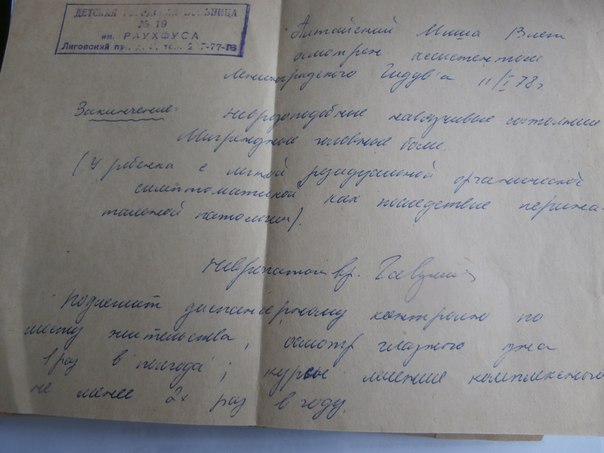 ДЕТСКАЯ ГОРОДСКАЯ БОЛЬНИЦА
№ 19
им. РАУХФУСА
Лиговский пр.
Алтайский Миша 8 лет
осмотрен ассистентом
Ленинградского Гидув'а 11/I 78 г.
Заключение: неврозоподобные навязчивые состояния
Мигренозные головные боли
(У ребенка с легкой резидуальной органической
симптоматикой как последствие перина-
тальной патологии).
Невропатолог вр.
Подлежит диспансерному контролю по
месту жительства, осмотр глазного дна
1 раз в полгода; курсы лечения комплексного
не менее 2х раз в году.